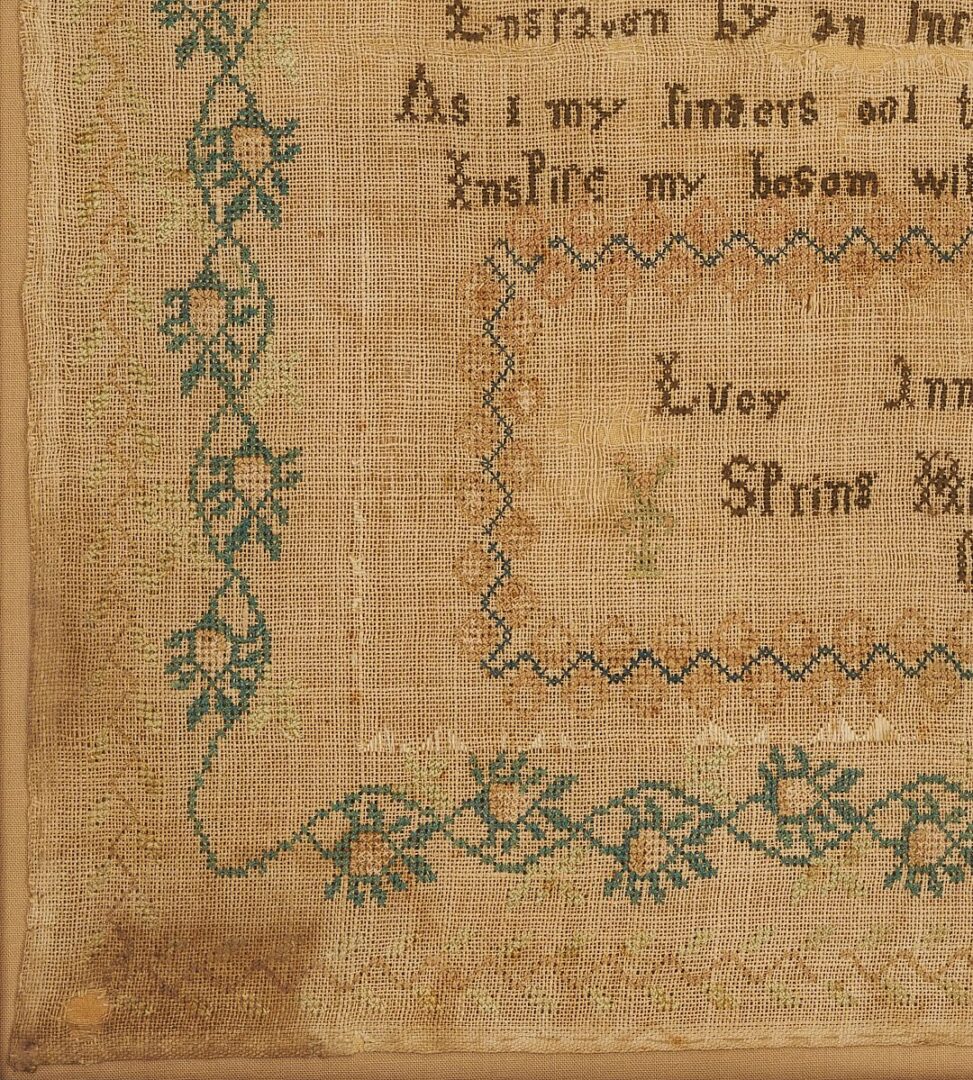 Engraven by an Inf
As i my fingers
Inspire my bosom wit
Lucy Ann
Spring